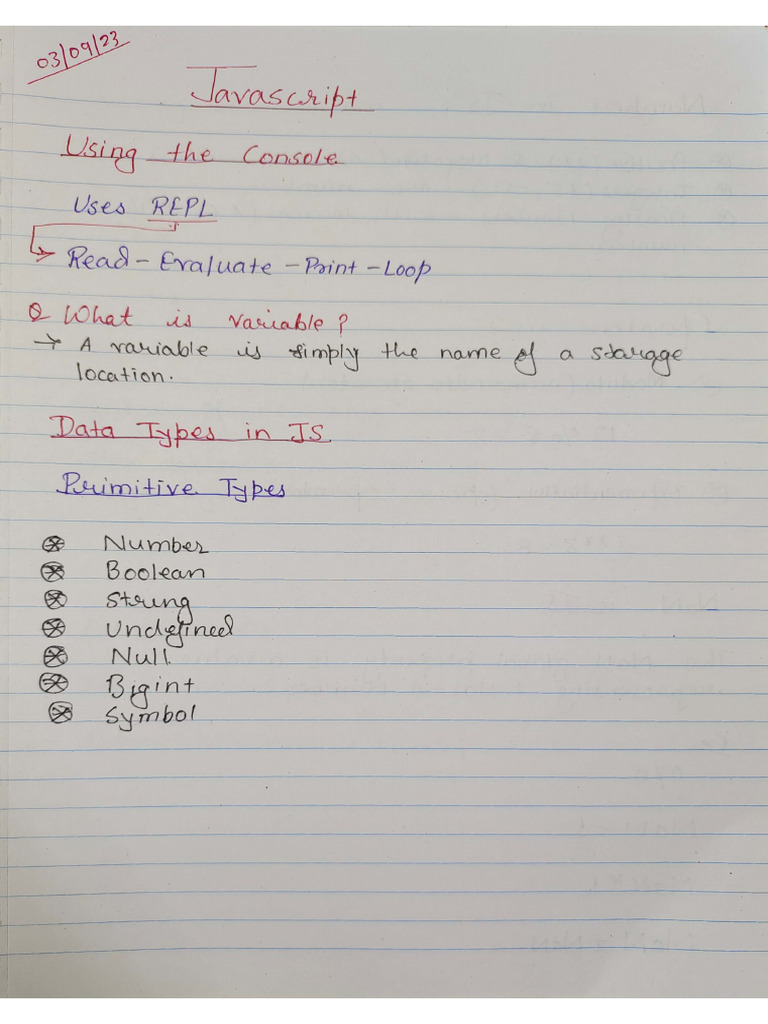 03/09/23
Javascript
Using the Console
Uses REPL
Read - Evaluate - Print - Loop
Q What is variable?
→ A variable is simply the name of a starage
location.
Data Types in JS
Primitive Types
Number
Boolean
String
Undefined
Null
Bigint
Symbol